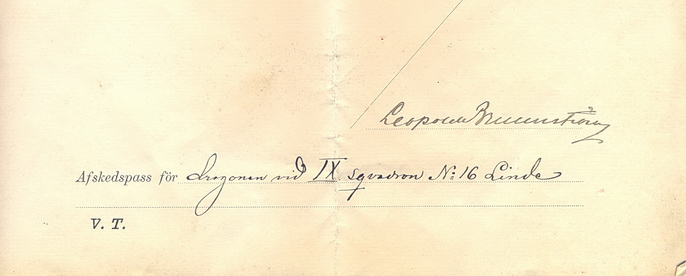 Leopold Brunnstierna
Afskedspass för dragonen vid IX sqvadron N: 16 Linde
V. T.